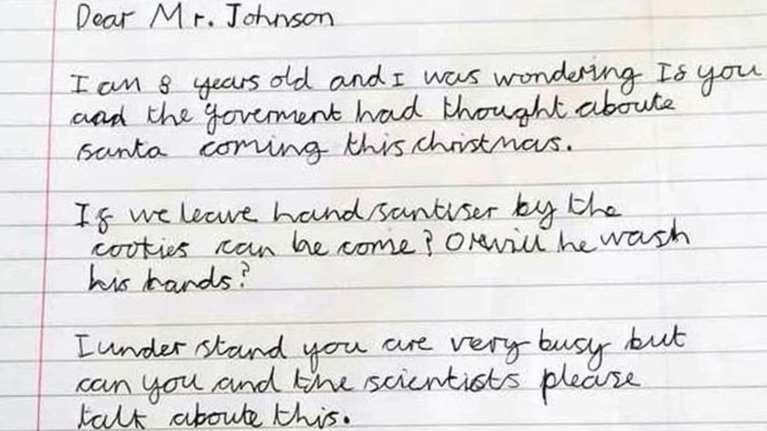 Dear Mr. Johnson
I am 8 years old and I was wondering If you
and the goverment had thought aboute
santa coming this christmas.
If we leave hand santiser by the
cookies can he come? Or will he wash
his hands?
I under stand you are very busy but
can you and the scientists please
talk aboute this.